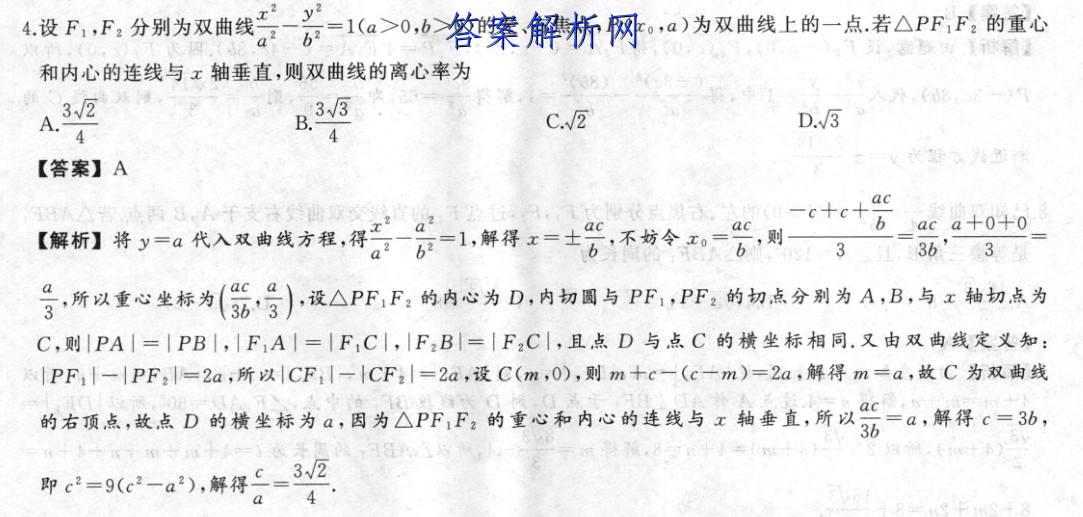 4.设 F₁,F₂ 分别为双曲线x²/a²-y²/b²=1(a>0,b>的 焦 ₀,a)为双曲线上的一点.若△PF₁F₂ 的重心
答案解析网
和内心的连线与 x 轴垂直,则双曲线的离心率为
A.3√2/4 B.3√3/4 C.√2 D.√3
【答案】A
【解析】将 y=a 代入双曲线方程,得x²/a²-a²/b²=1,解得 x=±ac/b,不妨令 x₀=ac/b,则(-c+c+ac/b)/3=ac/3b,(a+0+0)/3=
a/3,所以重心坐标为(ac/3b,a/3),设△PF₁F₂ 的内心为 D,内切圆与 PF₁,PF₂ 的切点分别为 A,B,与 x 轴切点为
C,则|PA|=|PB|,|F₁A|=|F₁C|,|F₂B|=|F₂C|,且点 D 与点 C 的横坐标相同.又由双曲线定义知:
|PF₁|-|PF₂|=2a,所以|CF₁|-|CF₂|=2a,设 C(m,0),则 m+c-(c-m)=2a,解得 m=a,故 C 为双曲线
的右顶点,故点 D 的横坐标为 a,因为△PF₁F₂ 的重心和内心的连线与 x 轴垂直,所以ac/3b=a,解得 c=3b,
即 c²=9(c²-a²),解得c/a=3√2/4.